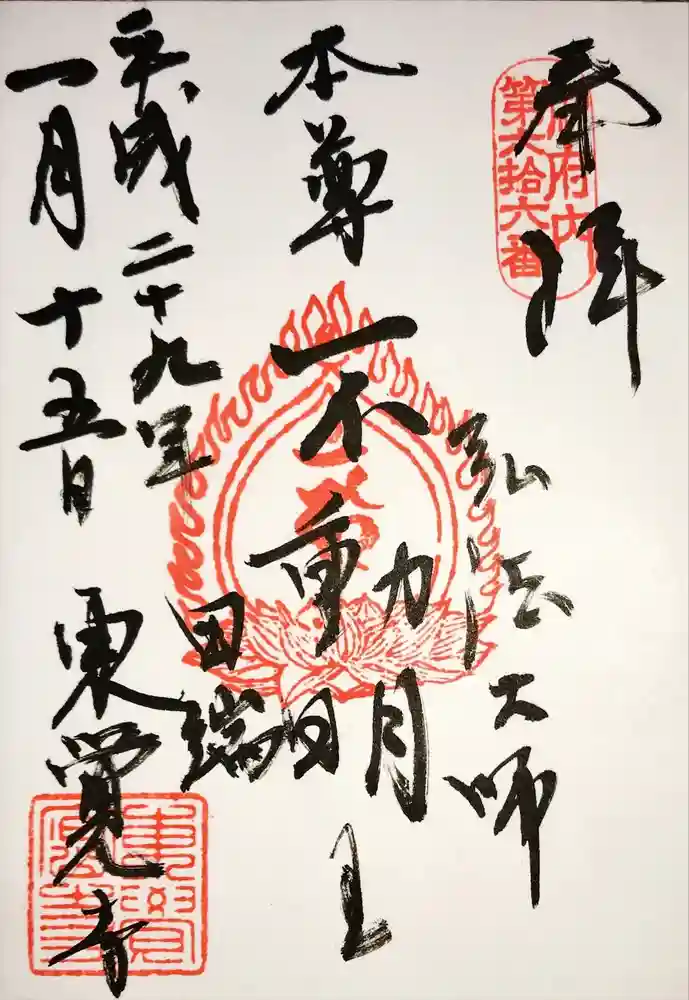 奉拝
御府内
第六拾六番
弘法大師
本尊不動明王
田端
平成二十九年
一月十五日
東覚寺